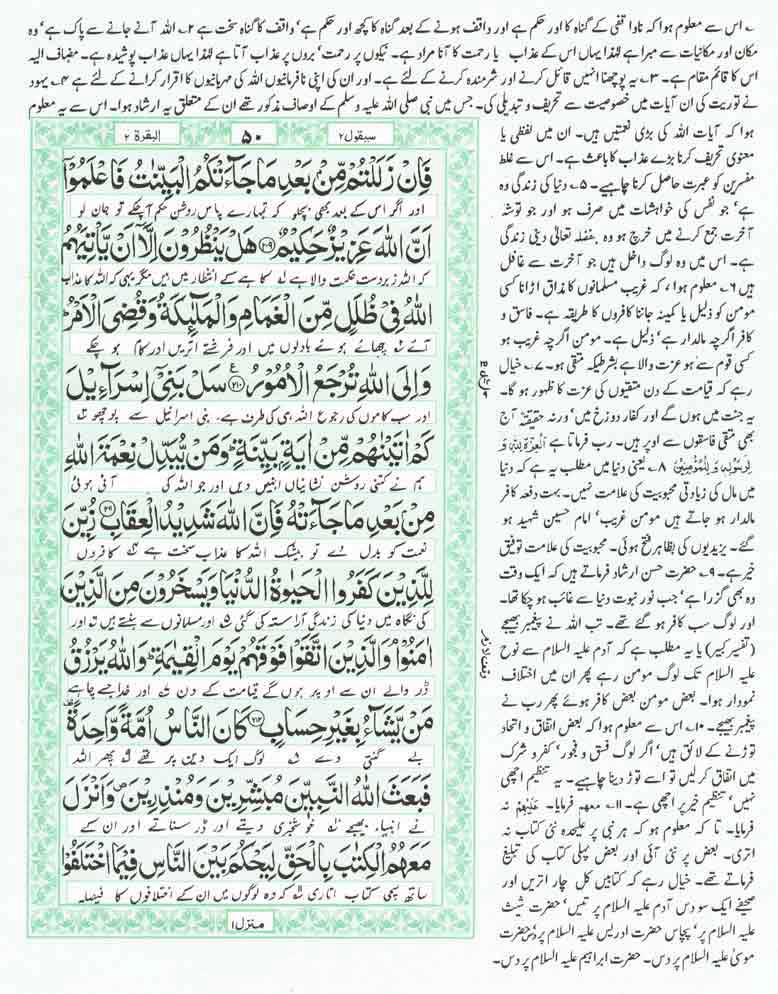 ۱۔ اس سے معلوم ہوا کہ ناواقفی کے گناہ کا اور حکم ہے اور واقف ہونے کے بعد گناہ کا کچھ اور حکم ہے، واقف کا گناہ سخت ہے ۲۔ اللہ آنے جانے سے پاک ہے، وہ
مکان اور مکانیات سے مبرا ہے لہٰذا یہاں اس کے عذاب یا رحمت کا آنا مراد ہے۔ نیکوں پر رحمت، بروں پر عذاب آتا ہے لہٰذا یہاں عذاب پوشیدہ ہے۔ مضاف الیہ
اس کا قائم مقام ہے۔ ۳۔ یہ پوچھنا انہیں قائل کرنے اور شرمندہ کرنے کے لئے ہے۔ اور ان کی اپنی نافرمانیوں اللہ کی مہربانیوں کا اقرار کرانے کے لئے ہے ۴۔ یہود
نے توریت کی ان آیات میں خصوصیت سے تحریف و تبدیلی کی۔ جس میں نبی صلی اللہ علیہ وسلم کے اوصاف مذکور تھے ان کے متعلق یہ ارشاد ہوا۔ اس سے یہ معلوم
ہوا کہ آیات اللہ کی بڑی نعمتیں ہیں۔ ان میں لفظی یا
معنوی تحریف کرنا بڑے عذاب کا باعث ہے۔ اس سے غلط
مفسرین کو عبرت حاصل کرنا چاہیے۔ ۵۔ دنیا کی زندگی وہ
ہے، جو نفس کی خواہشات میں صرف ہو اور جو توشہ
آخرت جمع کرنے میں خرچ ہو وہ بفضلہ تعالٰی دینی زندگی
ہے۔ اس میں وہ لوگ داخل ہیں جو آخرت سے غافل
ہیں ۶۔ معلوم ہوا، کہ غریب مسلمانوں کا مذاق اڑانا کسی
مومن کو ذلیل یا کمینہ جاننا کافروں کا طریقہ ہے۔ فاسق و
کافر اگرچہ مالدار ہے، ذلیل ہے۔ مومن اگرچہ غریب ہو
کسی قوم سے ہو عزت والا ہے بشرطیکہ متقی ہو۔ ۷۔ خیال
رہے کہ قیامت کے دن متقیوں کی عزت کا ظہور ہو گا۔
یہ جنت میں ہوں گے اور کفار دوزخ میں، ورنہ حقیقۃً آج
بھی متقی فاسقوں سے اوپر ہیں۔ رب فرماتا ہے اَلْعِزَّۃُ لِلّٰہِ وَ
لِرَسُوْلِہٖ وَ لِلْمُؤْمِنِیْنَ ۸۔ یعنی دنیا میں مطلب یہ ہے کہ دنیا
میں مال کی زیادتی محبوبیت کی علامت نہیں۔ بہت دفعہ کافر
مالدار ہو جاتے ہیں مومن غریب، امام حسین شہید ہو
گئے۔ یزیدیوں کی بظاہر فتح ہوئی۔ محبوبیت کی علامت توفیق
خیر ہے۔ ۹۔ حضرت حسن ارشاد فرماتے ہیں کہ ایک وقت
وہ بھی گزرا ہے، جب نور نبوت دنیا سے غائب ہو چکا تھا۔
اور لوگ سب کافر ہو گئے تھے۔ تب اللہ نے پیغمبر بھیجے
(تفسیر کبیر) یا یہ مطلب ہے کہ آدم علیہ السلام سے نوح
علیہ السلام تک لوگ مومن رہے پھر ان میں اختلاف
نمودار ہوا۔ بعض مومن بعض کافر ہوئے پھر رب نے
پیغمبر بھیجے۔ ۱۰۔ اس سے معلوم ہوا کہ بعض اتفاق و اتحاد
توڑنے کے لائق ہیں، اگر لوگ فسق و فجور، کفر و شرک
میں اتفاق کر لیں تو اسے توڑ دینا چاہیے۔ یہ تنظیم اچھی
نہیں، تنظیم خیر پر اچھی ہے۔ ۱۱۔ معھم فرمایا۔ عَلَیْہِمْ نہ
فرمایا۔ تا کہ معلوم ہو کہ ہر نبی پر علیحدہ نئی کتاب نہ
اتری۔ بعض پر نئی آئی اور بعض پہلی کتاب کی تبلیغ
فرماتے تھے۔ خیال رہے کہ کتابیں کل چار اتریں اور
صحیفے ایک سو دس آدم علیہ السلام پر تیس، حضرت شیث
علیہ السلام پر، پچاس حضرت ادریس علیہ السلام پر، حضرت
موسیٰ علیہ السلام پر دس۔ حضرت ابراہیم علیہ السلام پر دس۔
البقرۃ ۲
۵۰
سیقول ۲
فَاِنْ زَلَلْتُمْ مِّنْۢ بَعْدِ مَا جَآءَتْكُمُ الْبَیِّنٰتُ فَاعْلَمُوْۤا
اور اگر اس کے بعد بھی بچلو کہ تمہارے پاس روشن حکم آچکے تو جان لو
اَنَّ اللّٰهَ عَزِیْزٌ حَكِیْمٌ ۝۲۰۹ هَلْ یَنْظُرُوْنَ اِلَّاۤ اَنْ یَّاْتِیَهُمُ
کہ اللہ زبردست حکمت والا ہے کاہے کے انتظار میں ہیں مگر یہی کہ اللہ کا عذاب
اللّٰهُ فِیْ ظُلَلٍ مِّنَ الْغَمَامِ وَالْمَلٰٓئِكَةُ وَقُضِیَ الْاَمْرُ
آئے چھائے ہوئے بادلوں میں اور فرشتے اتریں اور کام ہو چکے
وَاِلَی اللّٰهِ تُرْجَعُ الْاُمُوْرُ ۝۲۱۰ سَلْ بَنِیْۤ اِسْرَآءِیْلَ
اور سب کاموں کی رجوع اللہ ہی کی طرف ہے، بنی اسرائیل سے پوچھو
كَمْ اٰتَیْنٰهُمْ مِّنْ اٰیَةٍۭ بَیِّنَةٍ ؕ وَمَنْ یُّبَدِّلْ نِعْمَةَ اللّٰهِ
ہم نے کتنی روشن نشانیاں انہیں دیں اور جو اللہ کی آئی ہوئی
مِنْۢ بَعْدِ مَا جَآءَتْهُ فَاِنَّ اللّٰهَ شَدِیْدُ الْعِقَابِ ۝۲۱۱ زُیِّنَ
نعمت کو بدل دے تو بیشک اللہ کا عذاب سخت ہے کافروں
لِلَّذِیْنَ كَفَرُوا الْحَیٰوةُ الدُّنْیَا وَیَسْخَرُوْنَ مِنَ الَّذِیْنَ
کی نگاہ میں دنیا کی زندگی آراستہ کی گئی اور مسلمانوں سے ہنستے ہیں اور
اٰمَنُوْا ۘ وَالَّذِیْنَ اتَّقَوْا فَوْقَهُمْ یَوْمَ الْقِیٰمَةِ ؕ وَاللّٰهُ یَرْزُقُ
ڈر والے ان سے اوپر ہوں گے قیامت کے دن اور خدا جسے چاہے
مَنْ یَّشَآءُ بِغَیْرِ حِسَابٍ ۝۲۱۲ كَانَ النَّاسُ اُمَّةً وَّاحِدَةً ۫
بے گنتی دے لوگ ایک دین پر تھے پھر اللہ
فَبَعَثَ اللّٰهُ النَّبِیّٖنَ مُبَشِّرِیْنَ وَمُنْذِرِیْنَ ۪ وَاَنْزَلَ
نے انبیاء بھیجے خوشخبری دیتے اور ڈر سناتے اور ان کے
مَعَهُمُ الْكِتٰبَ بِالْحَقِّ لِیَحْكُمَ بَیْنَ النَّاسِ فِیْمَا اخْتَلَفُوْا
ساتھ سچی کتاب اتاری کہ وہ لوگوں میں ان کے اختلافوں کا فیصلہ
منزل ۱
وقف لازم